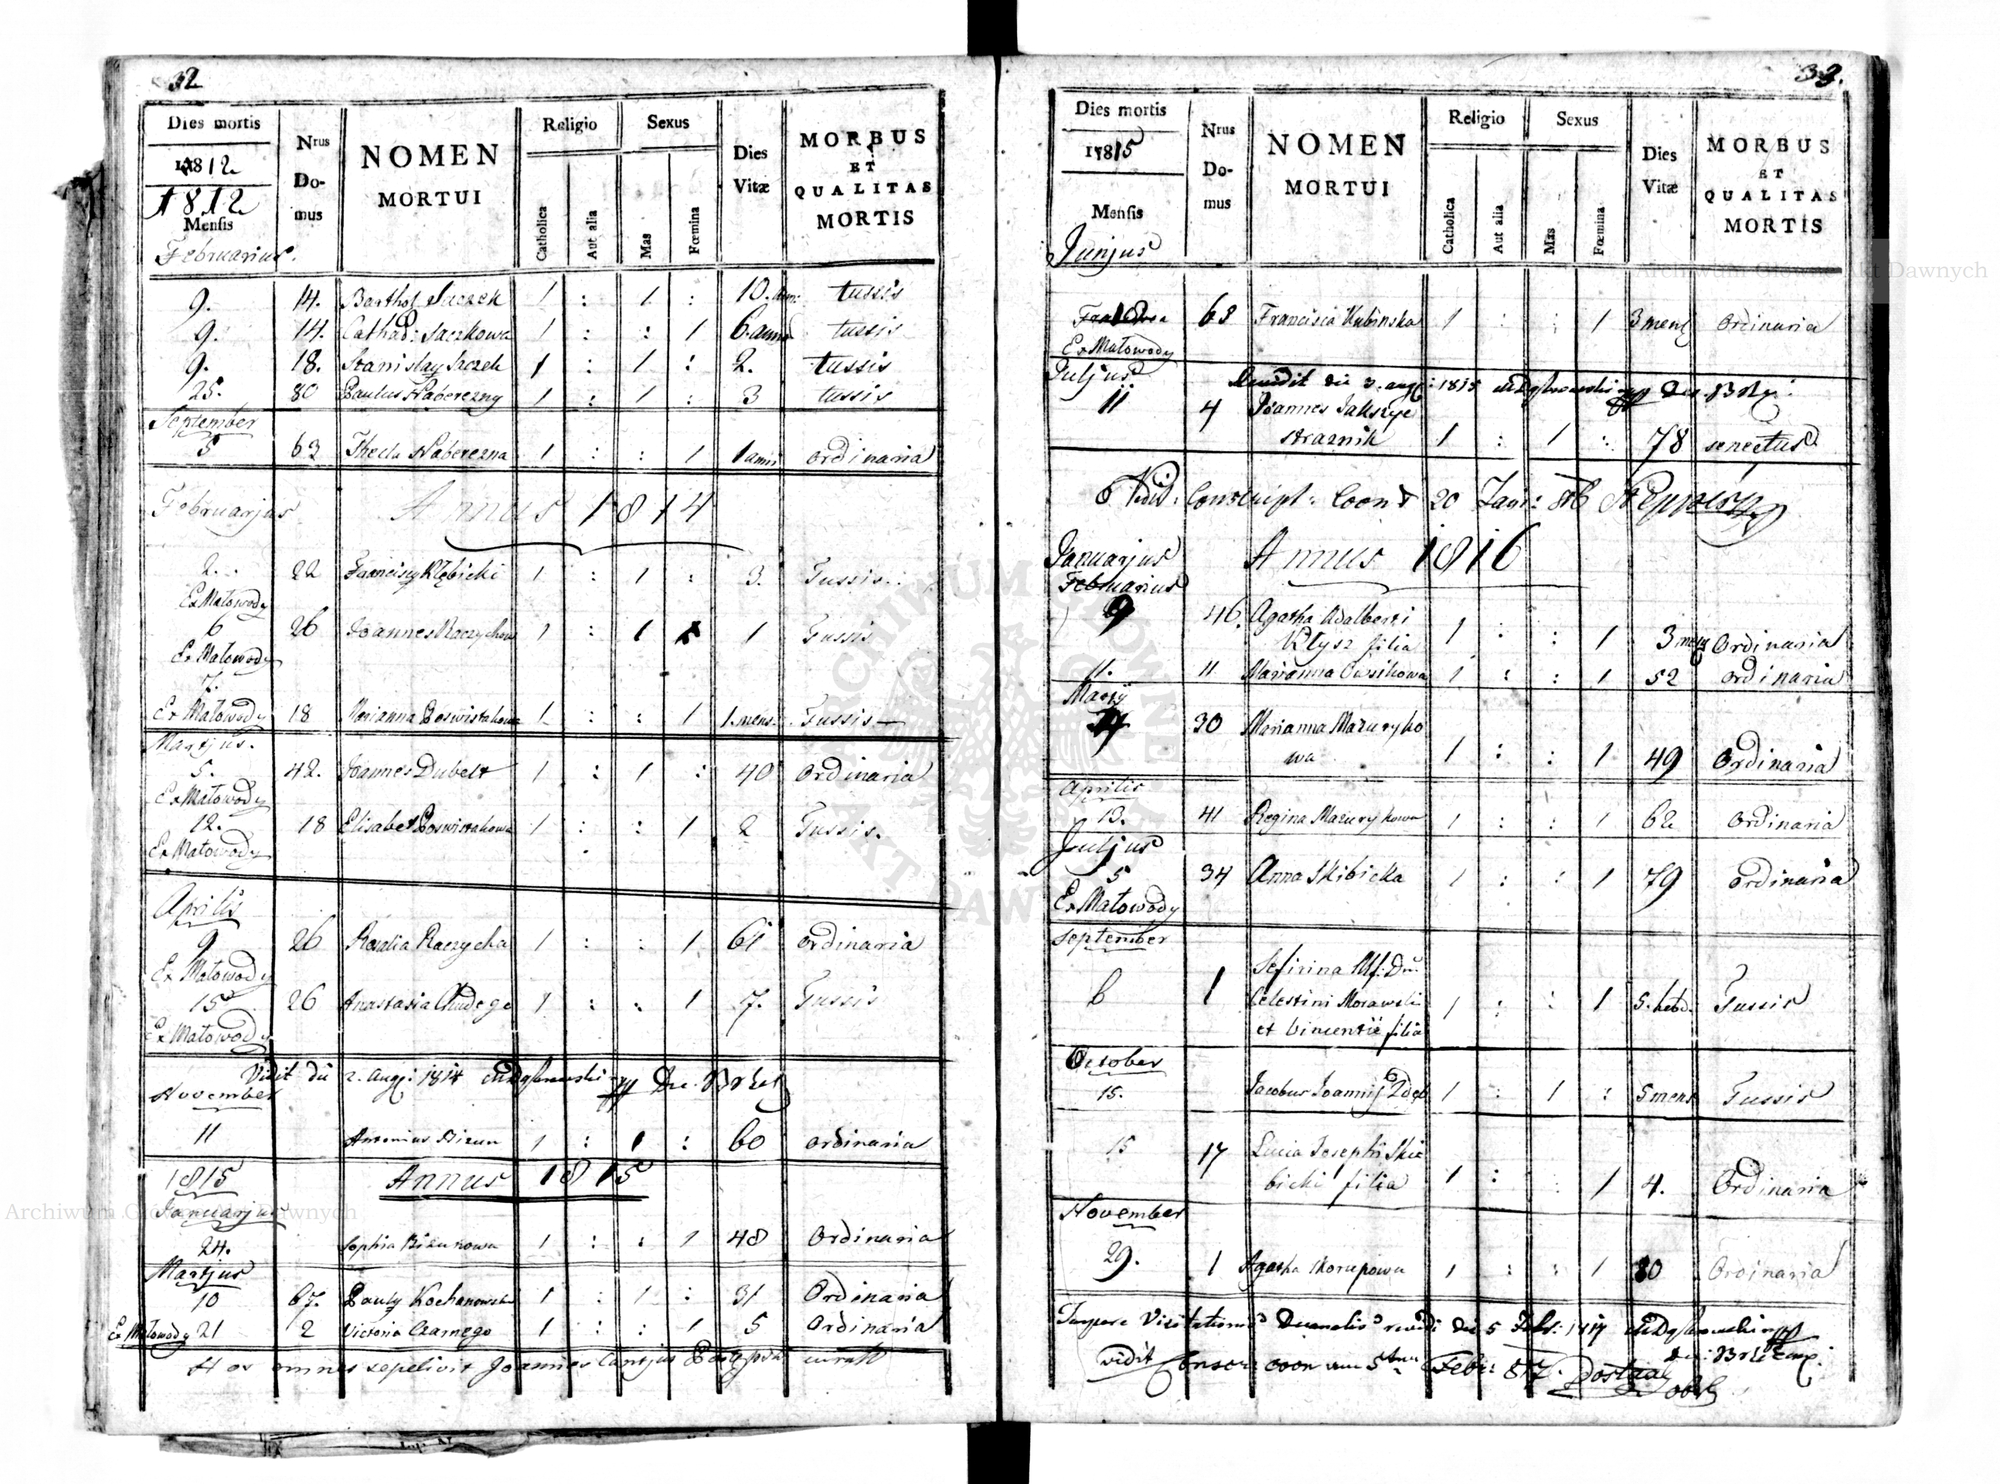 32
Dies mortis
Nrus Domus
NOMEN MORTUI
Religio
Sexus
Catholica
Aut alia
Mas
Fœmina
Dies Vitæ
MORBUS ET QUALITAS MORTIS
1812
1812
Mensis
Februarius.
9. 14. Barthol Saczek 1 : 1 10. ann: tussis
9. 14. Cathar: Saczkowa 1 : : 1 6. anno tussis
9. 18. Stanislaq Saczek 1 : 1 2. tussis
25. 80 Paulus Naberezny 1 : 1 3 tussis
September
5 63 Thecla Naberezna 1 : : 1 1 anni ordinaria
Februarjus Annus 1814
2. 22 Francisq Kłębicki 1 : 1 : 3. Tussis
Ex Małowody
6 26 Joannes 1 : 1 1 Tussis
Ex Małowody
7.
Ex Małowody 18 Marianna Poswistakowa 1 : : 1 1. mens. Tussis
Martjus.
5. 42. Joannes Dubelt 1 : 1 : 40 Ordinaria
Ex Małowody
12. 18 Elisabet Poswistakowa 1 : : 1 2 Tussis.
Ex Małowody
Aprilis
9 26 Rozalia Raczycha 1 : : 1 61 ordinaria
Ex Małowody
15 26 Anastasia 1 : : 1 7. Tussis
Ex Małowody
Vidit die 2. augq: 1814
November
11 Antonius Bizun 1 : 1 : 60 ordinaria
1815 Annus 1815
Januarjus
24. Sophia Bizunowa 1 : : 1 48 Ordinaria
Martjus
10 67. Paulq Kochanowski 1 : 1 : 31 Ordinaria
Ex Małowody 21 2 Victoria Czarnego 1 : : 1 5 Ordinaria
Hos omnes sepelivit Joannes Cantjus
33.
Dies mortis
Nrus Domus
NOMEN MORTUI
Religio
Sexus
Catholica
Aut alia
Mas
Fœmina
Dies Vitæ
MORBUS ET QUALITAS MORTIS
1815
Mensis
Junjus
18 68 Francisca Kubinska 1 : : 1 3 mens Ordinaria
Ex Małowody
Juljus. Revidit die 3. augq: 1815
11 4 Joannes Jakszye
straznik 1 : 1 : 78 senectus
Vidit: Conscript: Coon 20 Janr: 816
Januarjus Annus 1816
Februarius
9 46. Agatha Adalberti
Kłysz filia 1 : : 1 3 mens Ordinaria
11. 11 Marianna Owsikowa 1 : : 1 52 ordinaria
Martij
30 Marianna Mazuryko
wa 1 : : 1 49 Ordinaria
Aprilis
13. 41 Regina Mazurykowa 1 : : 1 62 Ordinaria
Juljus
5 34 Anna Skibicka 1 : : 1 79 ordinaria
Ex Małowody
September
6 1 Sefirina
Celestini Morawski
et Vincentii filia 1 : : 1 5. hebd. Tussis
October
15. Jacobus Joannis 1 : 1 : 5 mens Tussis
15 17 Lucia Josephi Ski
bicki filia 1 : 1 4. Ordinaria
November
29. 1 Agatha 1 : : 1 80 Ordinaria
Tempore Visitationis Decanalis revidi die 5 Febr: 1817
vidit 5 Febr: 817.
Archiwum Główne Akt Dawnych
Archiwum Główne Akt Dawnych
ARCHIWUM GŁÓWNE AKT DAWNYCH